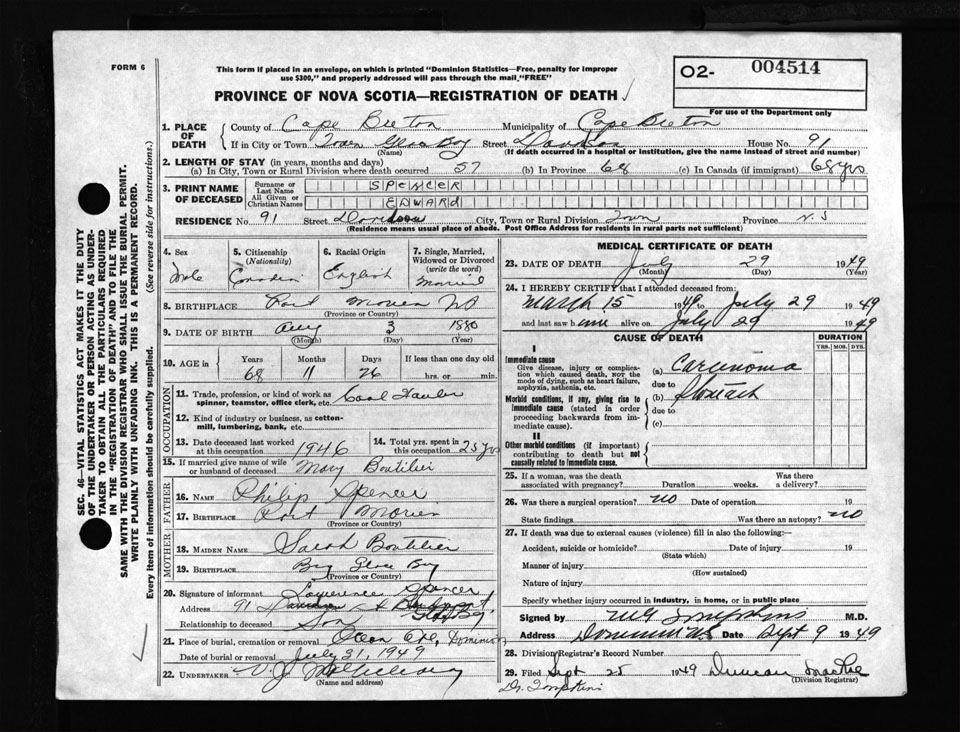 FORM 6
This form if placed in an envelope, on which is printed "Dominion Statistics—Free, penalty for improper
use $300," and properly addressed will pass through the mail "FREE"
O2- 004514
For use of the Department only
PROVINCE OF NOVA SCOTIA—REGISTRATION OF DEATH
SEC. 46—VITAL STATISTICS ACT MAKES IT THE DUTY
OF THE UNDERTAKER OR PERSON ACTING AS UNDER-
TAKER TO OBTAIN ALL THE PARTICULARS REQUIRED
IN THE "REGISTRATION OF DEATH" AND TO FILE THE
SAME WITH THE DIVISION REGISTRAR WHO SHALL ISSUE THE BURIAL PERMIT.
WRITE PLAINLY WITH UNFADING INK. THIS IS A PERMANENT RECORD.
Every item of information should be carefully supplied. (See reverse side for instructions.)
1. PLACE OF DEATH
County of Cape Breton Municipality of Cape Breton
If in City or Town Town Glace Bay Street Davidson House No. 91
(Name) (If death occurred in a hospital or institution, give the name instead of street and number)
2. LENGTH OF STAY (in years, months and days)
(a) In City, Town or Rural Division where death occurred 57 (b) In Province 68 (c) In Canada (if immigrant) 68 yrs
3. PRINT NAME OF DECEASED
Surname or Last Name SPENCER
All Given or Christian Names EDWARD
RESIDENCE No. 91 Street Davidson City, Town or Rural Division Town Province N.S
(Residence means usual place of abode. Post Office Address for residents in rural parts not sufficient)
4. Sex Male
5. Citizenship (Nationality) Canadian
6. Racial Origin English
7. Single, Married, Widowed or Divorced (write the word) Married
8. BIRTHPLACE Port Morien NS
(Province or Country)
9. DATE OF BIRTH Aug 3 1880
(Month) (Day) (Year)
10. AGE in Years 68 Months 11 Days 26 If less than one day old hrs. or min.
OCCUPATION
11. Trade, profession, or kind of work as spinner, teamster, office clerk, etc. Coal
12. Kind of industry or business, as cotton-mill, lumbering, bank, etc.
13. Date deceased last worked at this occupation 1946
14. Total yrs. spent in this occupation 25 yrs
15. If married give name of wife or husband of deceased Mary Boutilier
FATHER
16. NAME Philip Spencer
17. BIRTHPLACE Port Morien
(Province or Country)
MOTHER
18. MAIDEN NAME Sarah Boutilier
19. BIRTHPLACE Big Glace Bay
(Province or Country)
20. Signature of informant Lawrence Spencer
Address 91
Relationship to deceased Son
21. Place of burial, cremation or removal Ocean Dominion
Date of burial or removal July 31, 1949
22. UNDERTAKER V. J.
(Name and address)
MEDICAL CERTIFICATE OF DEATH
23. DATE OF DEATH July 29 1949
(Month) (Day) (Year)
24. I HEREBY CERTIFY that I attended deceased from:
March 15 1949 to July 29 1949
and last saw him alive on July 29 1949
CAUSE OF DEATH DURATION
YRS. MOS. DYS.
I
Immediate cause
Give disease, injury or complication which caused death, NOT the mode of dying, such as heart failure, asphyxia, asthenia, etc.
(a) Carcinoma
due to
Morbid conditions, if any, giving rise to immediate cause (stated in order proceeding backwards from immediate cause).
(b) Stomach
due to
(c)
II
Other morbid conditions (if important) contributing to death but not causally related to immediate cause.
25. If a woman, was the death associated with pregnancy? Duration weeks. Was there a delivery?
26. Was there a surgical operation? no Date of operation 19
State findings Was there an autopsy? no
27. If death was due to external causes (violence) fill in also the following:—
Accident, suicide or homicide? Date of injury 19
(State which)
Manner of injury
(How sustained)
Nature of injury
Specify whether injury occurred in industry, in home, or in public place
Signed by Tompkins M.D.
Address Dominion NS Date Sept 9 1949
28. Division Registrar's Record Number
29. Filed Sept 25 1949 Duncan
(Division Registrar)
Dr. Tompkins